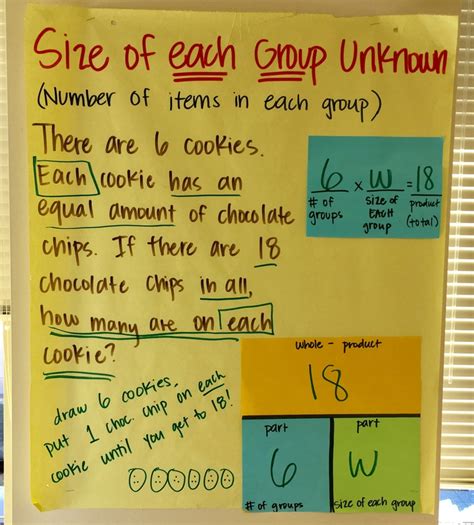 Size of each Group Unknown
(Number of items in each group)
There are 6 cookies.
Each cookie has an
equal amount of chocolate
chips. If there are 18
chocolate chips in all,
how many are on each
cookie?
6 x W = 18
# of groups
size of EACH group
product (total)
draw 6 cookies.
put 1 choc. chip on each
cookie until you get to 18!
whole - product
18
part
6
# of groups
part
W
size of each group